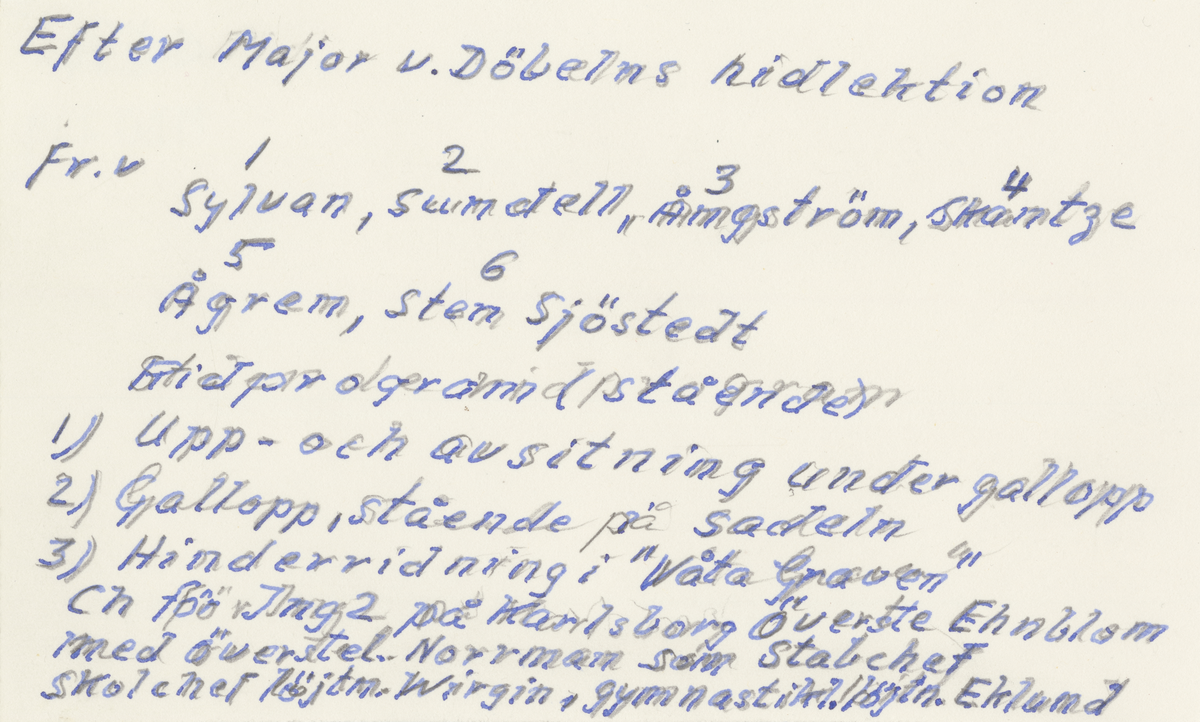 Efter Major v. Döbelns ridlektion
Fr. v
1 2 3 4
Sylvan, Sundell, Ångström, Skäntze
5 6
Ågren, Sten Sjöstedt
(stående)
1) Upp- och avsitning under gallopp
2) Gallopp, stående på sadeln
3) Hinderridning i "Våta Graven"
Ch för Ing2 på Karlsborg Överste Ehnblom
med överstel. Norrman som Stabchef
Skolchef löjtn. Wirgin, gymnastikl. löjtn. Eklund